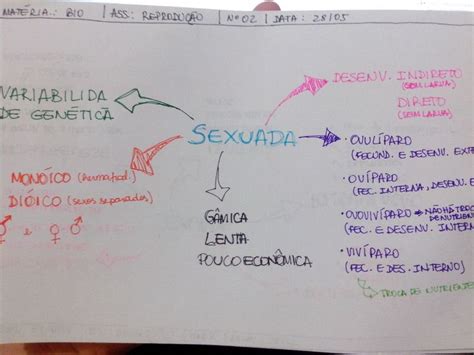 MATÉRIA: BIO | ASS: REPRODUÇÃO | Nº 02 | DATA: 28/05
VARIABILIDA
DE GENÉTICA
SEXUADA
DESENV. INDIRETO
(COM LARVA)
DIRETO
(SEM LARVA)
MONÓICO (hermafrod.)
DIÓICO (sexos separados)
♂ e ♀ ♂
GÂMICA
LENTA
POUCO ECONÔMICA
• OVULÍPARO
(FECUND. E DESENV. EXTE
• OVÍPARO
(FEC. INTERNA, DESENV. E
• OVOVIVÍPARO → NÃO HÁ TROC
DE NUTRIENTE
(FEC. E DESENV. INTERN
• VIVÍPARO
(FEC. E DES. INTERNO)
TROCA DE NUTRIENTE